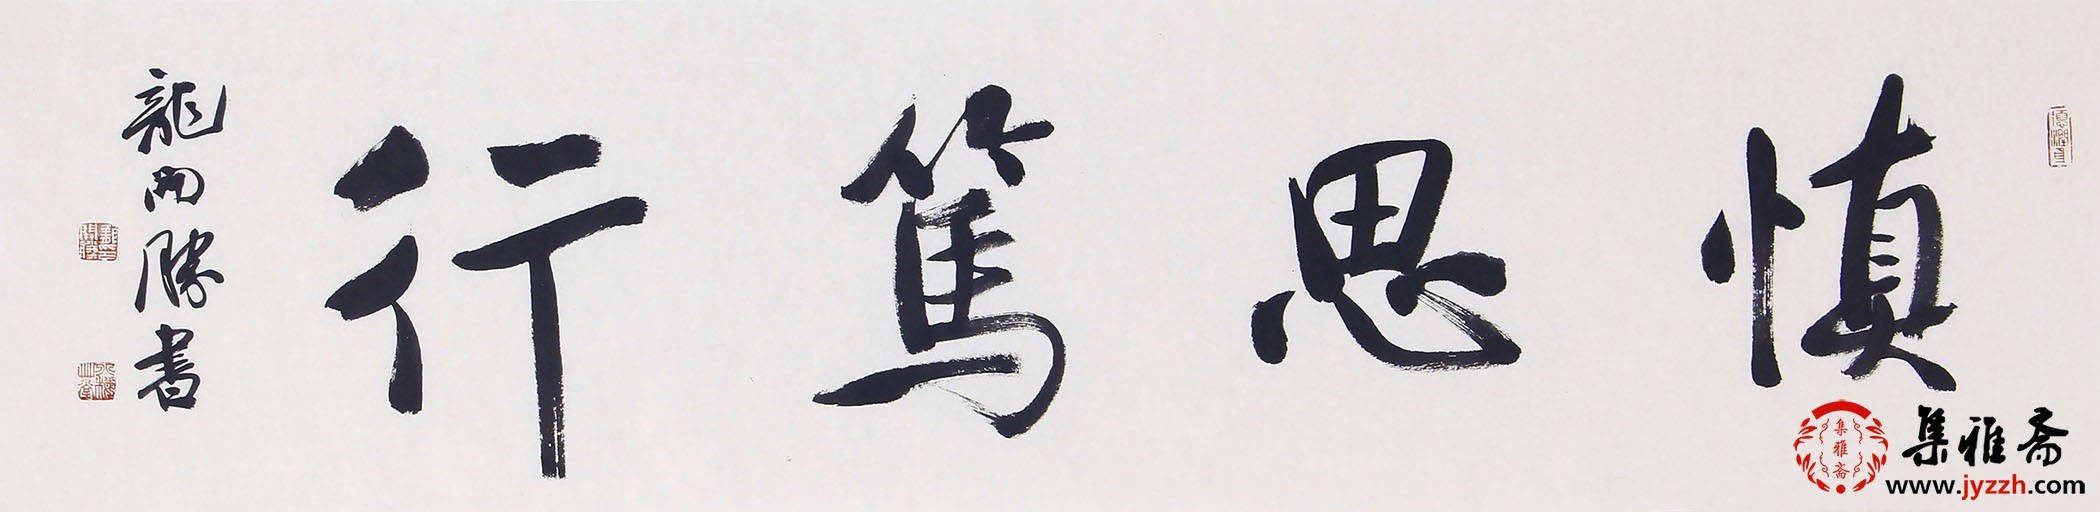 慎思篤行
龍開勝書
集雅斋
集雅斋
www.jyzzh.com